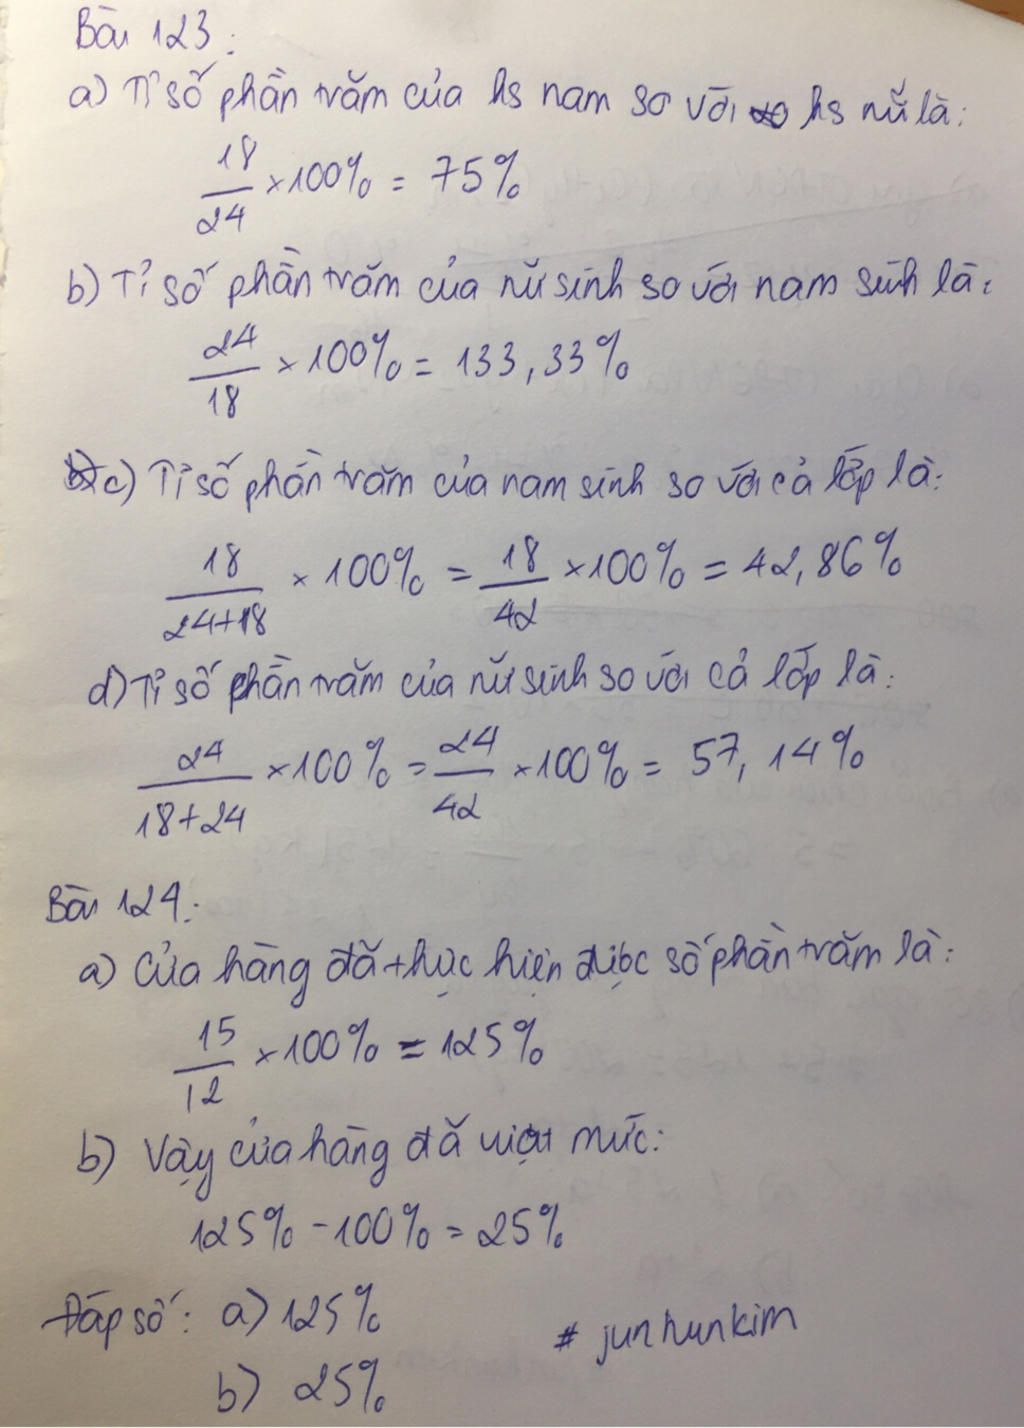 Bài 123:
a) Tỉ số phần trăm của hs nam so với hs nữ là:
18/24 × 100% = 75%
b) Tỉ số phần trăm của nữ sinh so với nam sinh là:
24/18 × 100% = 133,33%
c) Tỉ số phần trăm của nam sinh so với cả lớp là:
18/24+18 × 100% = 18/42 × 100% = 42,86%
d) Tỉ số phần trăm của nữ sinh so với cả lớp là:
24/18+24 × 100% = 24/42 × 100% = 57,14%
Bài 124:
a) Cửa hàng đã thực hiện được số phần trăm là:
15/12 × 100% = 125%
b) Vậy cửa hàng đã vượt mức:
125% - 100% = 25%
Đáp số: a) 125%
# junhunkim
b) 25%